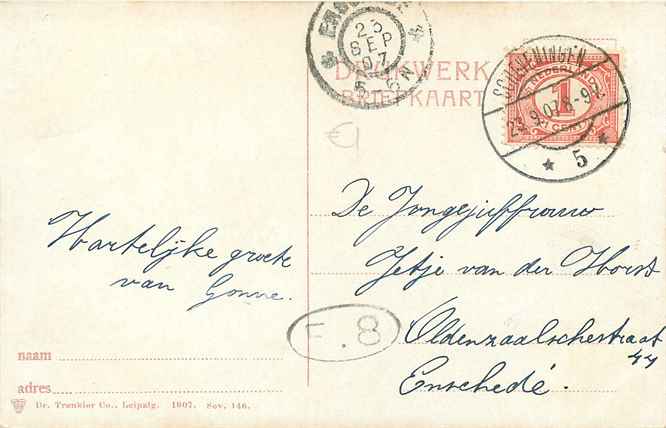 ENSCHEDE
25
SEP
07
5
5N
DRUKWERK
BRIEFKAART
SCHEVENINGEN
23.9.07.8-9V.
5
NEDERLAND
1
CENT
€1
Hartelijke groete
van Gonne.
De Jongejuffrouw
Jetje van der Horst
Oldenzaalschestraat
44
Enschedé.
F.8
naam
adres
Dr. Trenkler Co., Leipzig. 1907. Sov, 146.